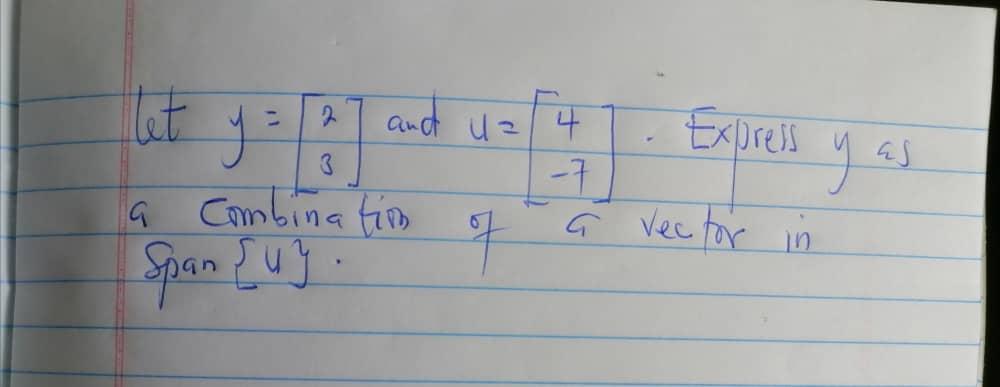 let y = [2 3] and u = [4 -7] . Express y as
a Combination of a vector in
Span {u} .